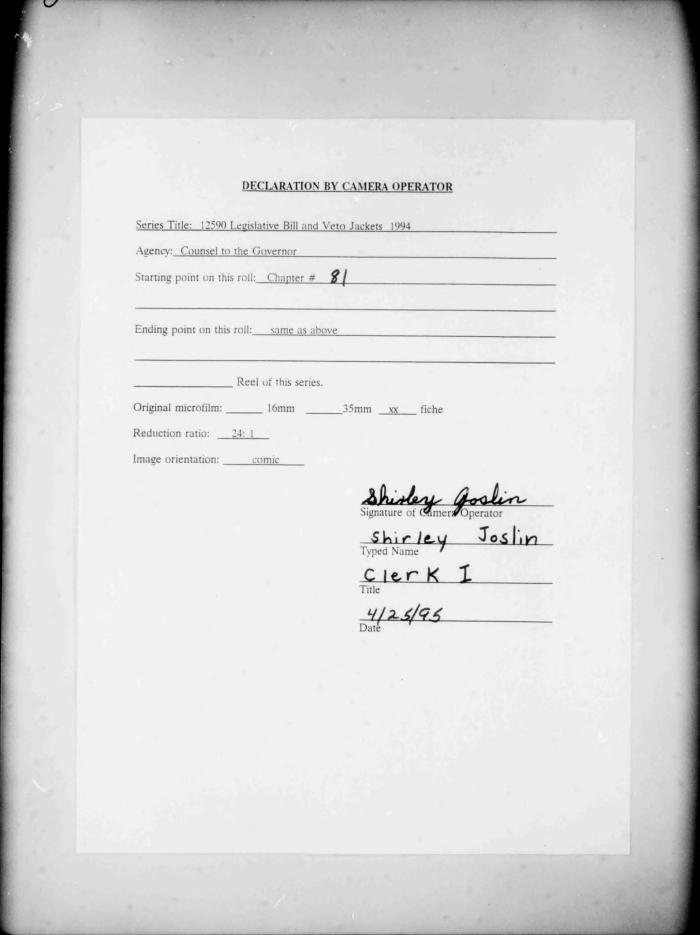 DECLARATION BY CAMERA OPERATOR
Series Title: 12590 Legislative Bill and Veto Jackets 1994
Agency: Counsel to the Governor
Starting point on this roll: Chapter # 81
Ending point on this roll: same as above
Reel of this series.
Original microfilm: 16mm 35mm xx fiche
Reduction ratio: 24: 1
Image orientation: comic
Shirley Joslin
Signature of Camera Operator
Shirley Joslin
Typed Name
Clerk I
Title
4/25/95
Date